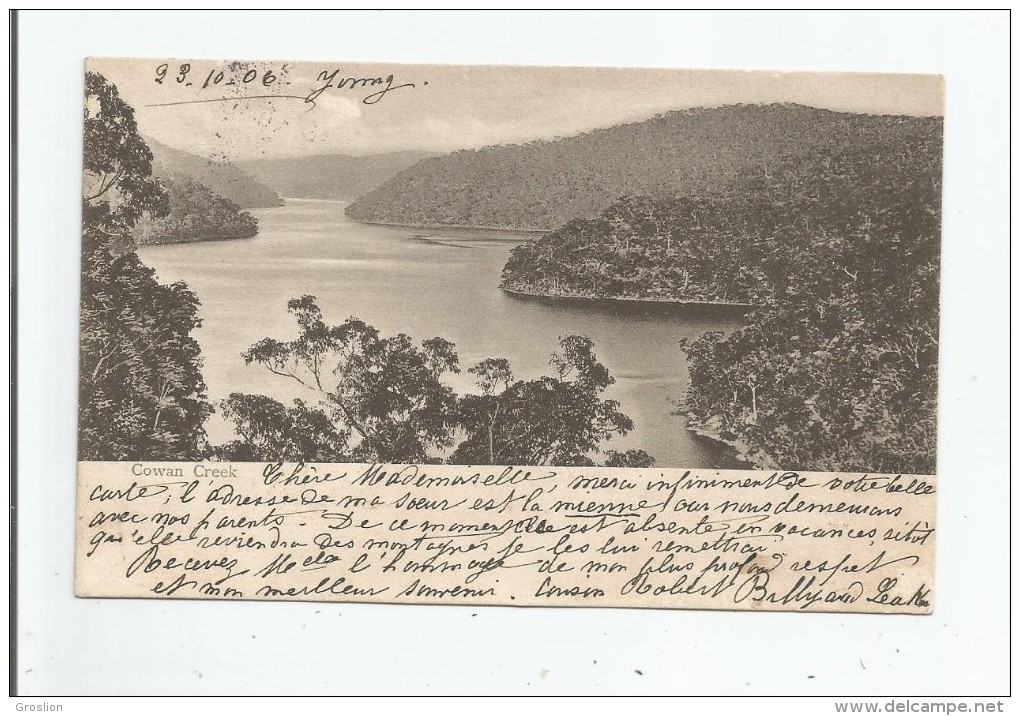 23-10-06 Young.
Cowan Creek
Chère Mademoiselle, merci infiniment de votre belle
carte; l'adresse de ma soeur est la mienne car nous demeurons
avec nos parents. De ce moment elle est absente en vacances, sitôt
qu'elle reviendra des montagnes je les lui remettrai
Recevez Melle l'hommage de mon plus profond respect
et mon meilleur souvenir. Cousin Robert
Groslion
www.delcampe.net